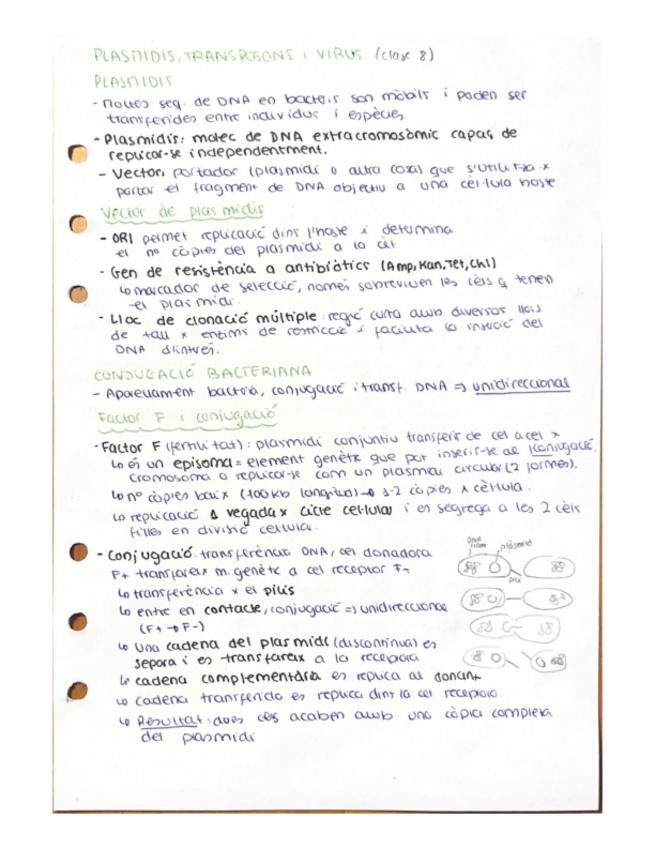 PLASMIDIS, TRANSPOSONS i VIRUS (clase 8)
PLASMIDIS
- Moltes seq. de DNA en bacteris son mòbils i poden ser
transferides entre individus i espècies.
- Plasmidis: molec de DNA extracromosòmic capaç de
replicar-se independentment.
- Vector: portador (plasmidi o altra cosa) que s'utilitza x
portar el fragment de DNA objectiu a una cèl·lula hoste.
Vector de plasmidis
- ORI permet replicació dins l'hoste i determina
el nº còpies del plasmidi a la cèl
- Gen de resistència a antibiòtics (Amp, Kan, Tet, Chl)
↳ marcador de selecció, només sobreviuen les cèls q tenen
el plasmidi.
- Lloc de clonació múltiple: regió curta amb diversos llocs
de tall x enzims de restricció i facilita la inserció del
DNA d'interès.
CONJUGACIÓ BACTERIANA
- Aparellament bacterià, conjugació i transf. DNA => unidireccional
Factor F i conjugació
- Factor F (fertilitat): plasmidi conjuntiu transferir de cel a cel x
conjugació.
↳ és un episoma = element genètic que pot inserir-se al
cromosoma o replicar-se com un plasmidi circular (2 formes).
↳ nº còpies baix (100kb longitud) → 1-2 còpies x cèl·lula.
↳ replicació 1 vegada x cicle cel·lular i es segrega a les 2 cèls
filles en divisió cel·lular.
- Conjugació: transferència DNA, cel donadora
F+ transfereix m. genètic a cel receptor F-
↳ transferència x el pilus
↳ entre en contacte, conjugació => unidireccional
(F+ → F-)
↳ Una cadena del plasmidi (discontinua) es
separa i es transfereix a la receptora
↳ cadena complementària es replica al donant
↳ cadena transferida es replica dins la cel receptora.
↳ Resultat: dues cels acaben amb una còpia completa
del plasmidi
DNA
plàsmid
pili